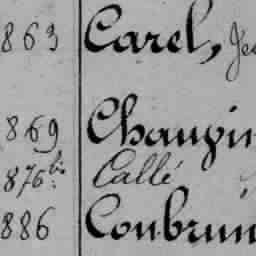 863 Carel, Je
869 Chaupin
876 bis Callé
886 Coubrun